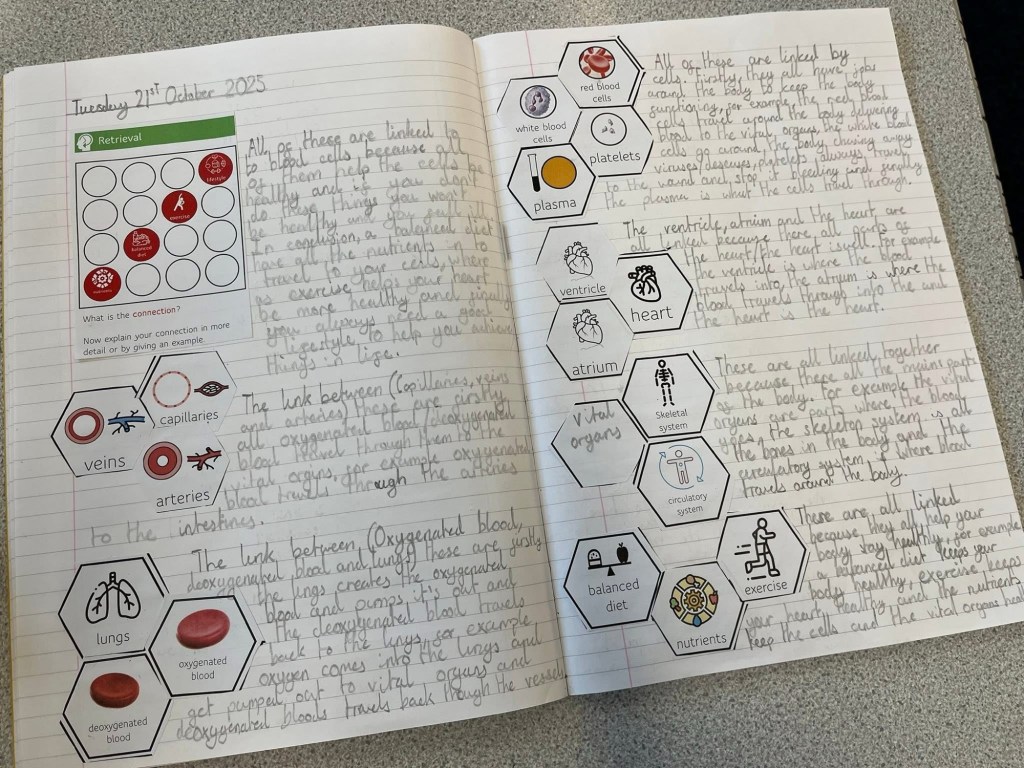 Tuesday 21st October 2025
Retrieval
lifestyle
exercise
balanced
diet
What is the connection?
Now explain your connection in more
detail or by giving an example.
All of these are linked to
blood cells because all
of them help the cells be
healthy and if you don't
do these things you won't
be healthy and you
In conclusion, a balanced diet
have all the nutrients in to
travel to your cells, where
as exercise helps your heart
be more healthy and
you always need a good
lifestyle. To help you achieve
things in life.
capillaries
veins
arteries
The link between (Capillaries, veins
and arteries) these are firstly
all oxygenated blood deoxygenated
blood travel through them to the
vital orgins, for example oxygenated
blood travels through the arteries
to the intestines.
lungs
oxygenated
blood
deoxygenated
blood
The link between (Oxygenated blood,
deoxygenated bloal and lungs) these are firstly
the lungs creates the oxygenated
blood and pumps it's out and
The deoxygenated blood travels
back to the lungs, for example
oxygen comes into the lungs and
get pumped out to vital organs and
deoxygenated bloods travels back though the vessels.
red blood
cells
white blood
cells
platelets
plasma
All of these are linked by
cells. firstly, they all have jobs
around the body to keep the body
functioning, for example, the red blood
cells travel around the body delivering
blood to the vital organs, the white blood
cells go around the body chasing away
viruses/diseases, platelets always travel
to the wound and stop it bleeding and
the plasma is what the cells travel through.
ventricle
heart
atrium
The ventricle, atrium and the heart are
all linked because there all parts of
the heart/the heart is self. for example
the ventricle is where the blood
travels into, the atrium is where the
blood travels through into the and
the heart is the heart.
Skeletal
system
vital
organs
circulatory
system
These are all linked together
because there all the main parts
of the body. for example the vital
organs are parts where the blood
goes, the skeletop system is all
the bones in the body and the
circulatory system is where blood
travels around the body.
balanced
diet
exercise
nutrients
There are all linked
because they all help your
body stay healthy, for example
a balanced diet keeps your
body healthy, exercise keeps
your heart healthy and the nutrients
keep the cells and the vital organs